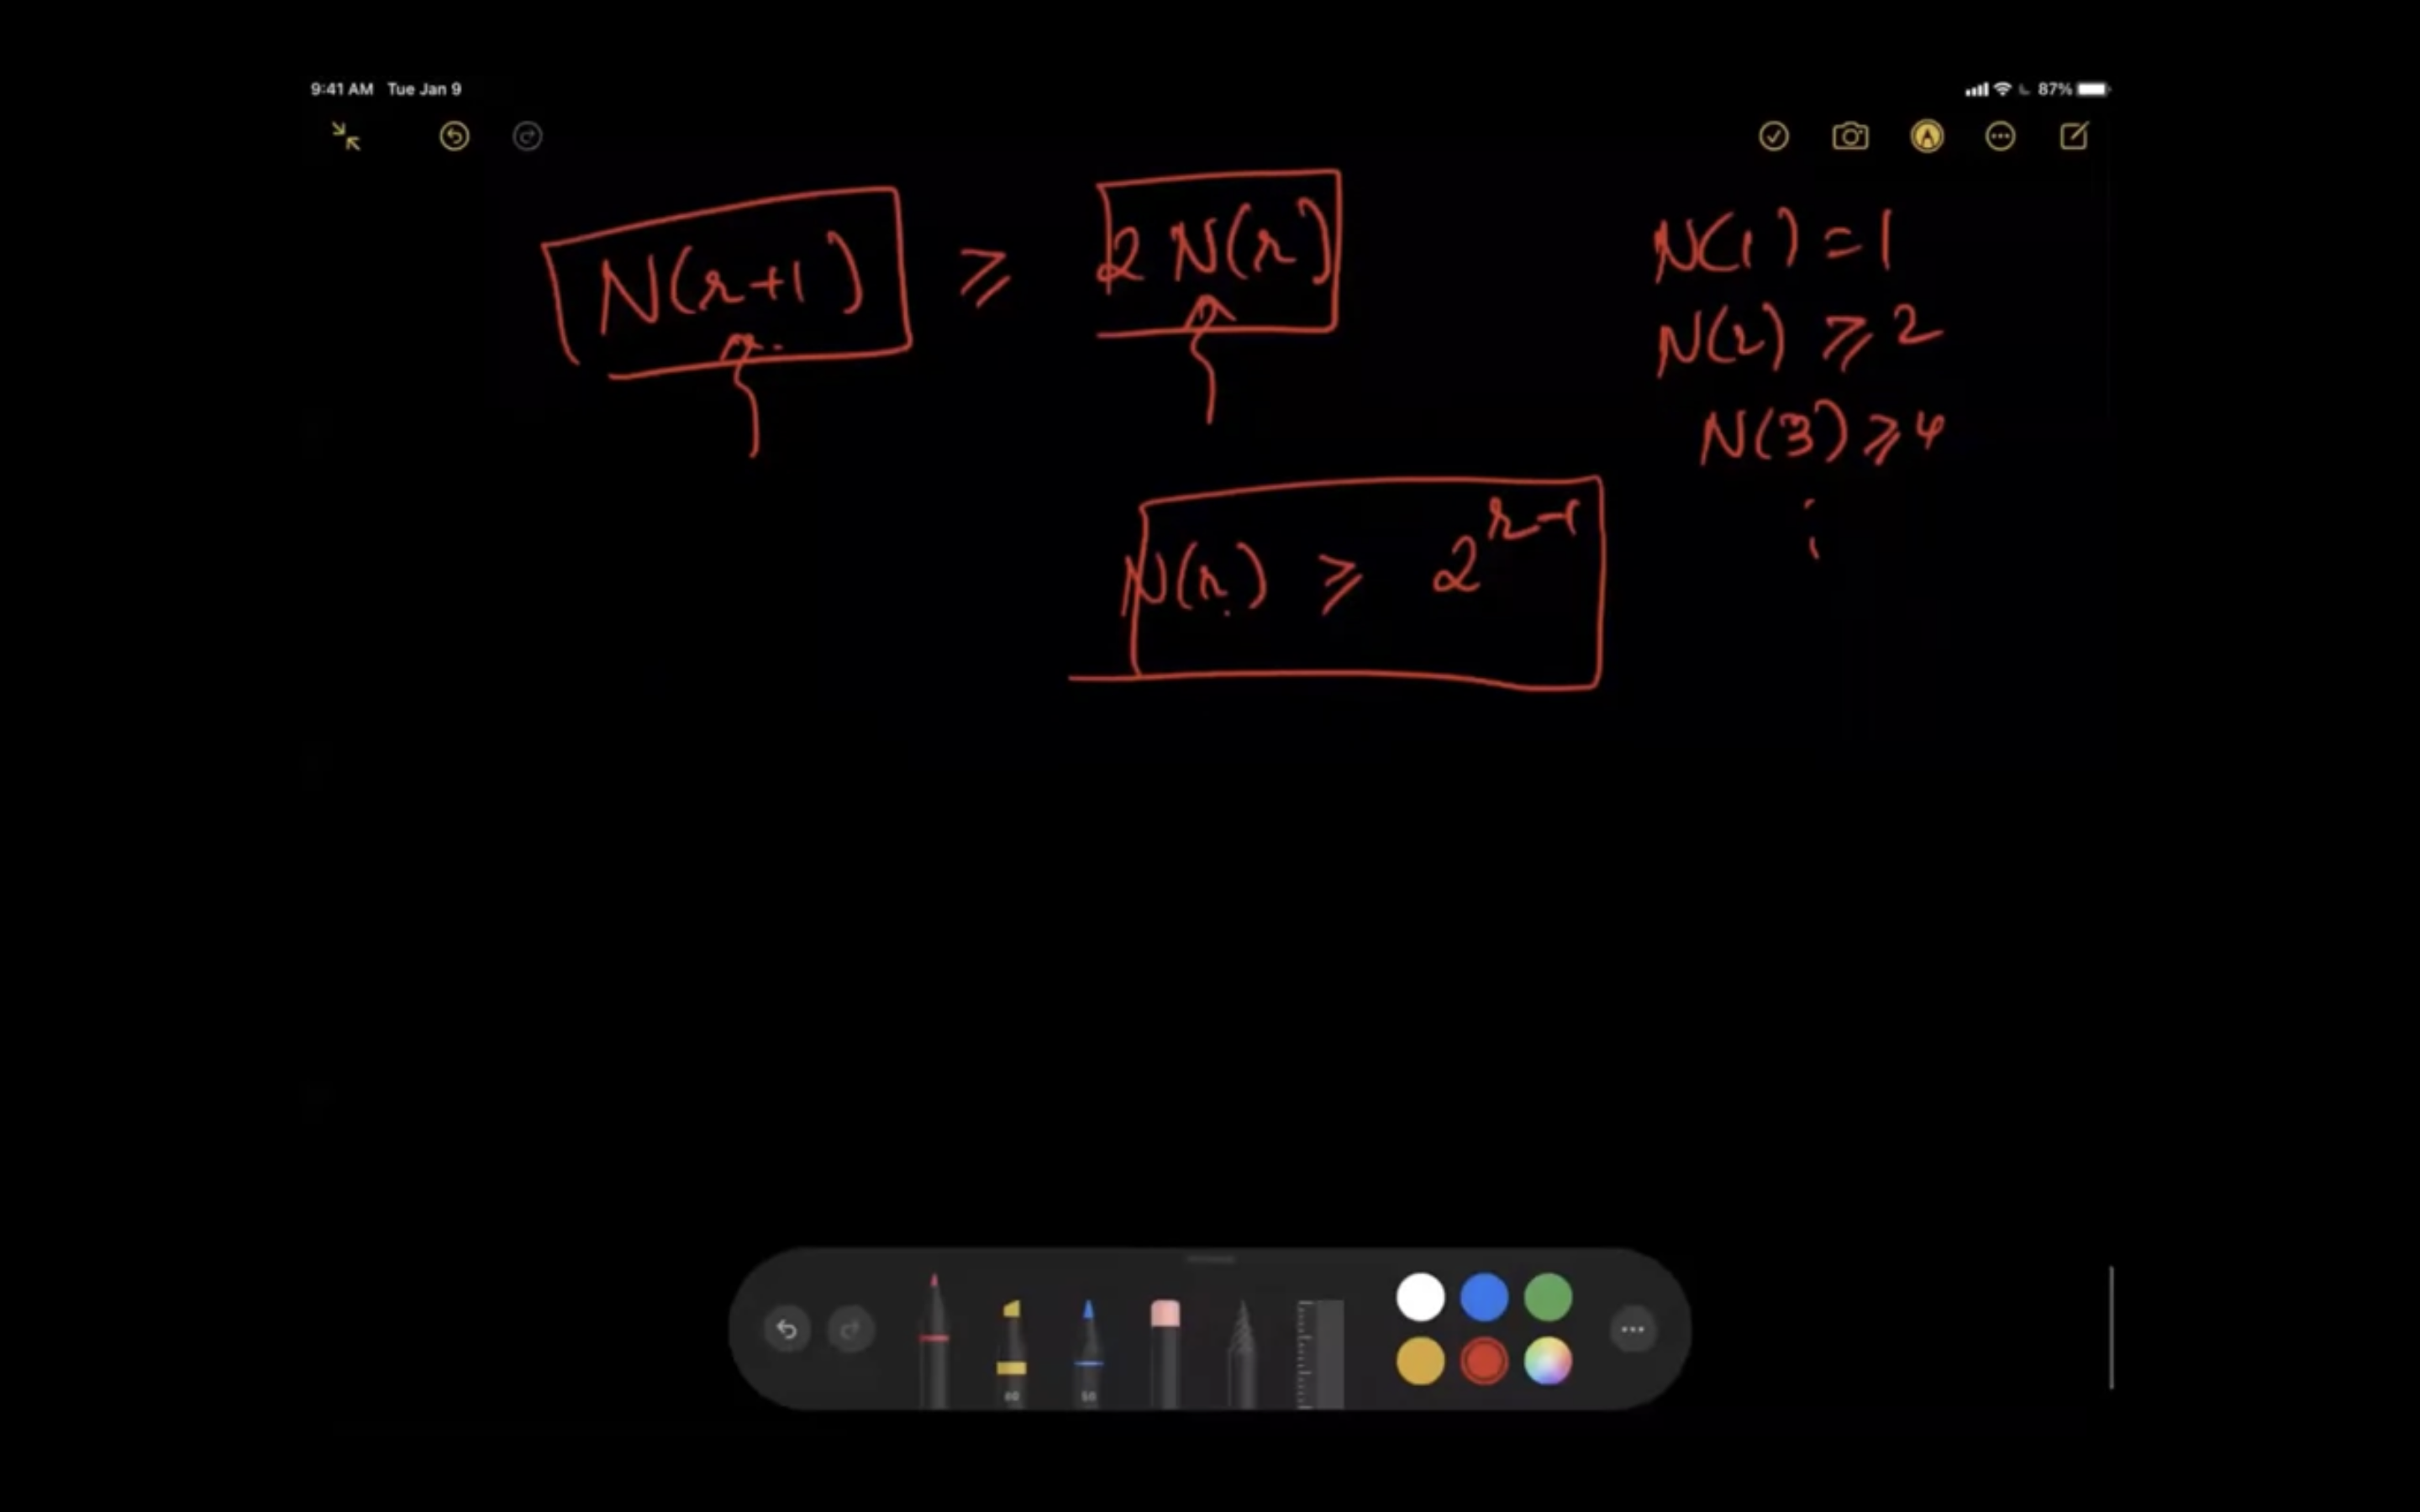 9:41 AM Tue Jan 9
87%
N(r+1) ≥ 2 N(r)
N(1) = 1
N(2) ≥ 2
N(3) ≥ 4
⋮
N(r) ≥ 2^{r-1}
80 50